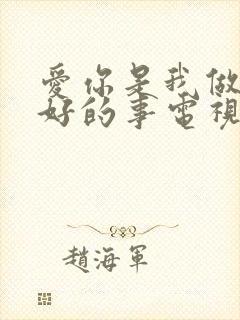 愛你是我做
好的事電視
趙海軍